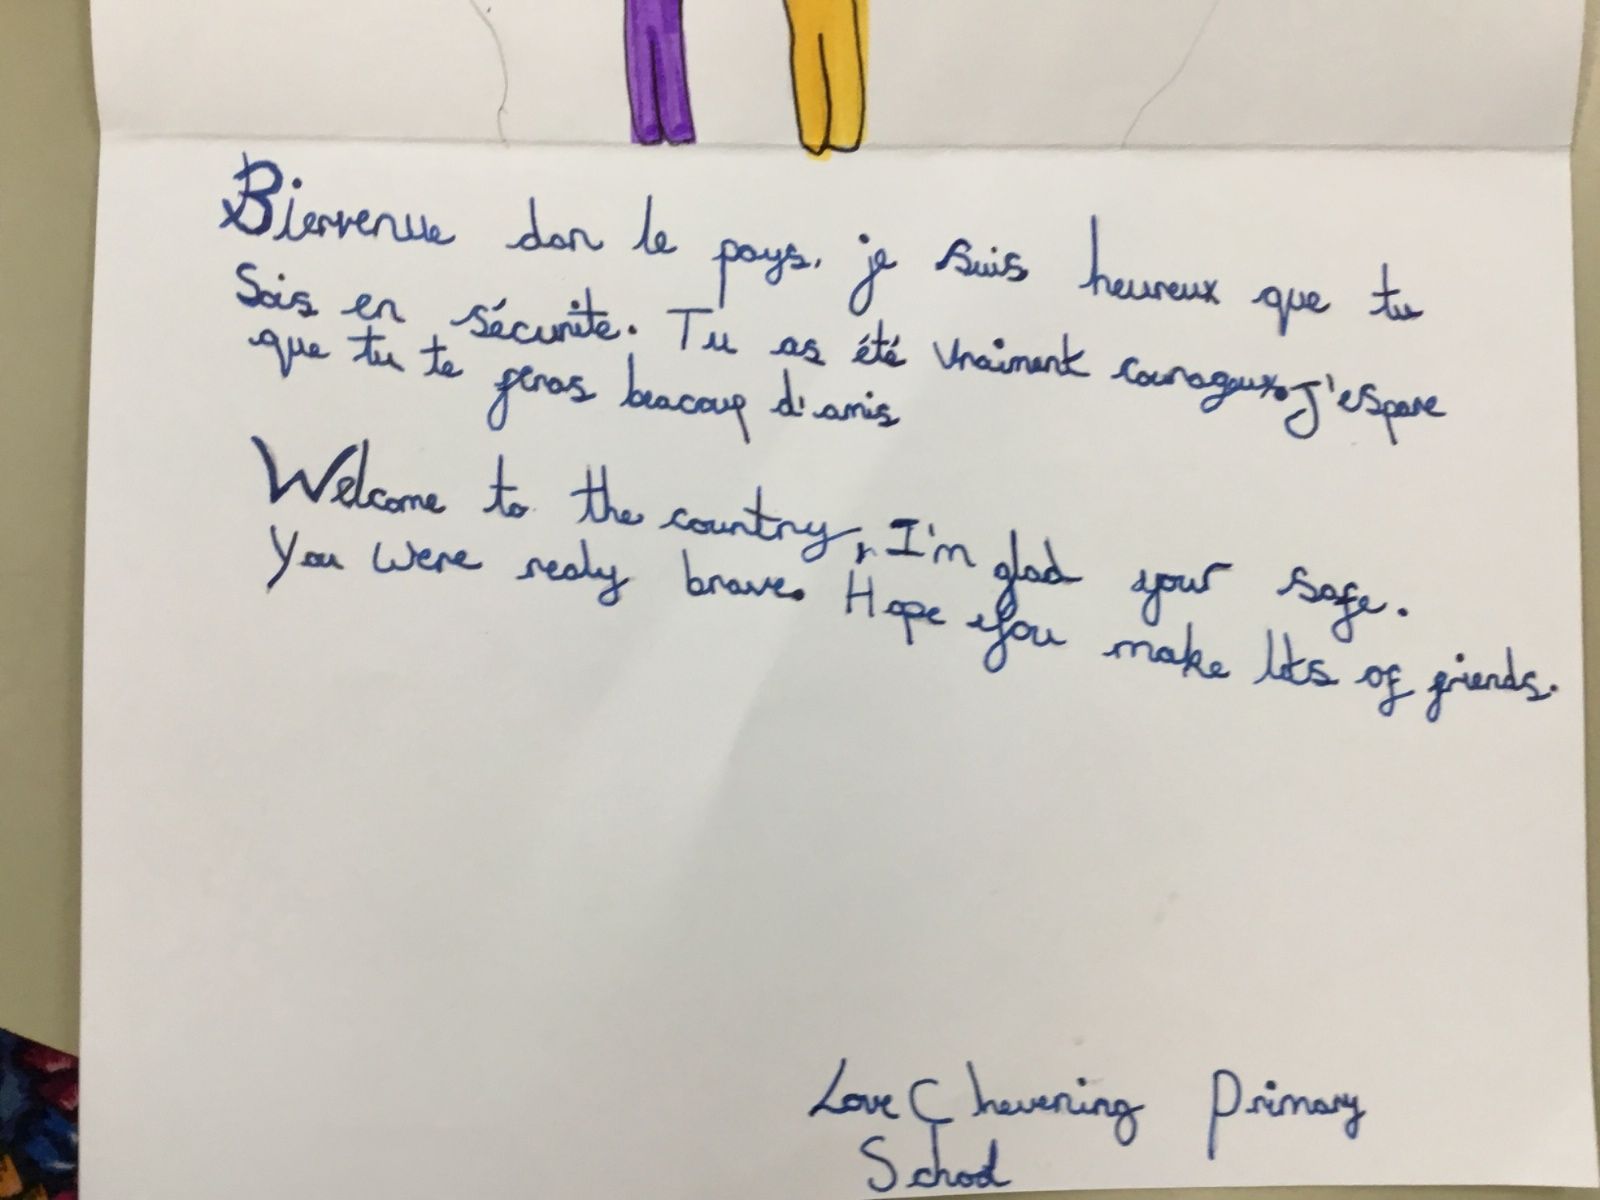 Bienvenue dan le pays, je suis heureux que tu
Sois en sécurité. Tu as été vraiment courageux. J'espare
que tu te feras beacoup d'amis
Welcome to the country, I'm glad your safe.
You were realy brave. Hope you make lots of friends.
Love Chevening Primary
School